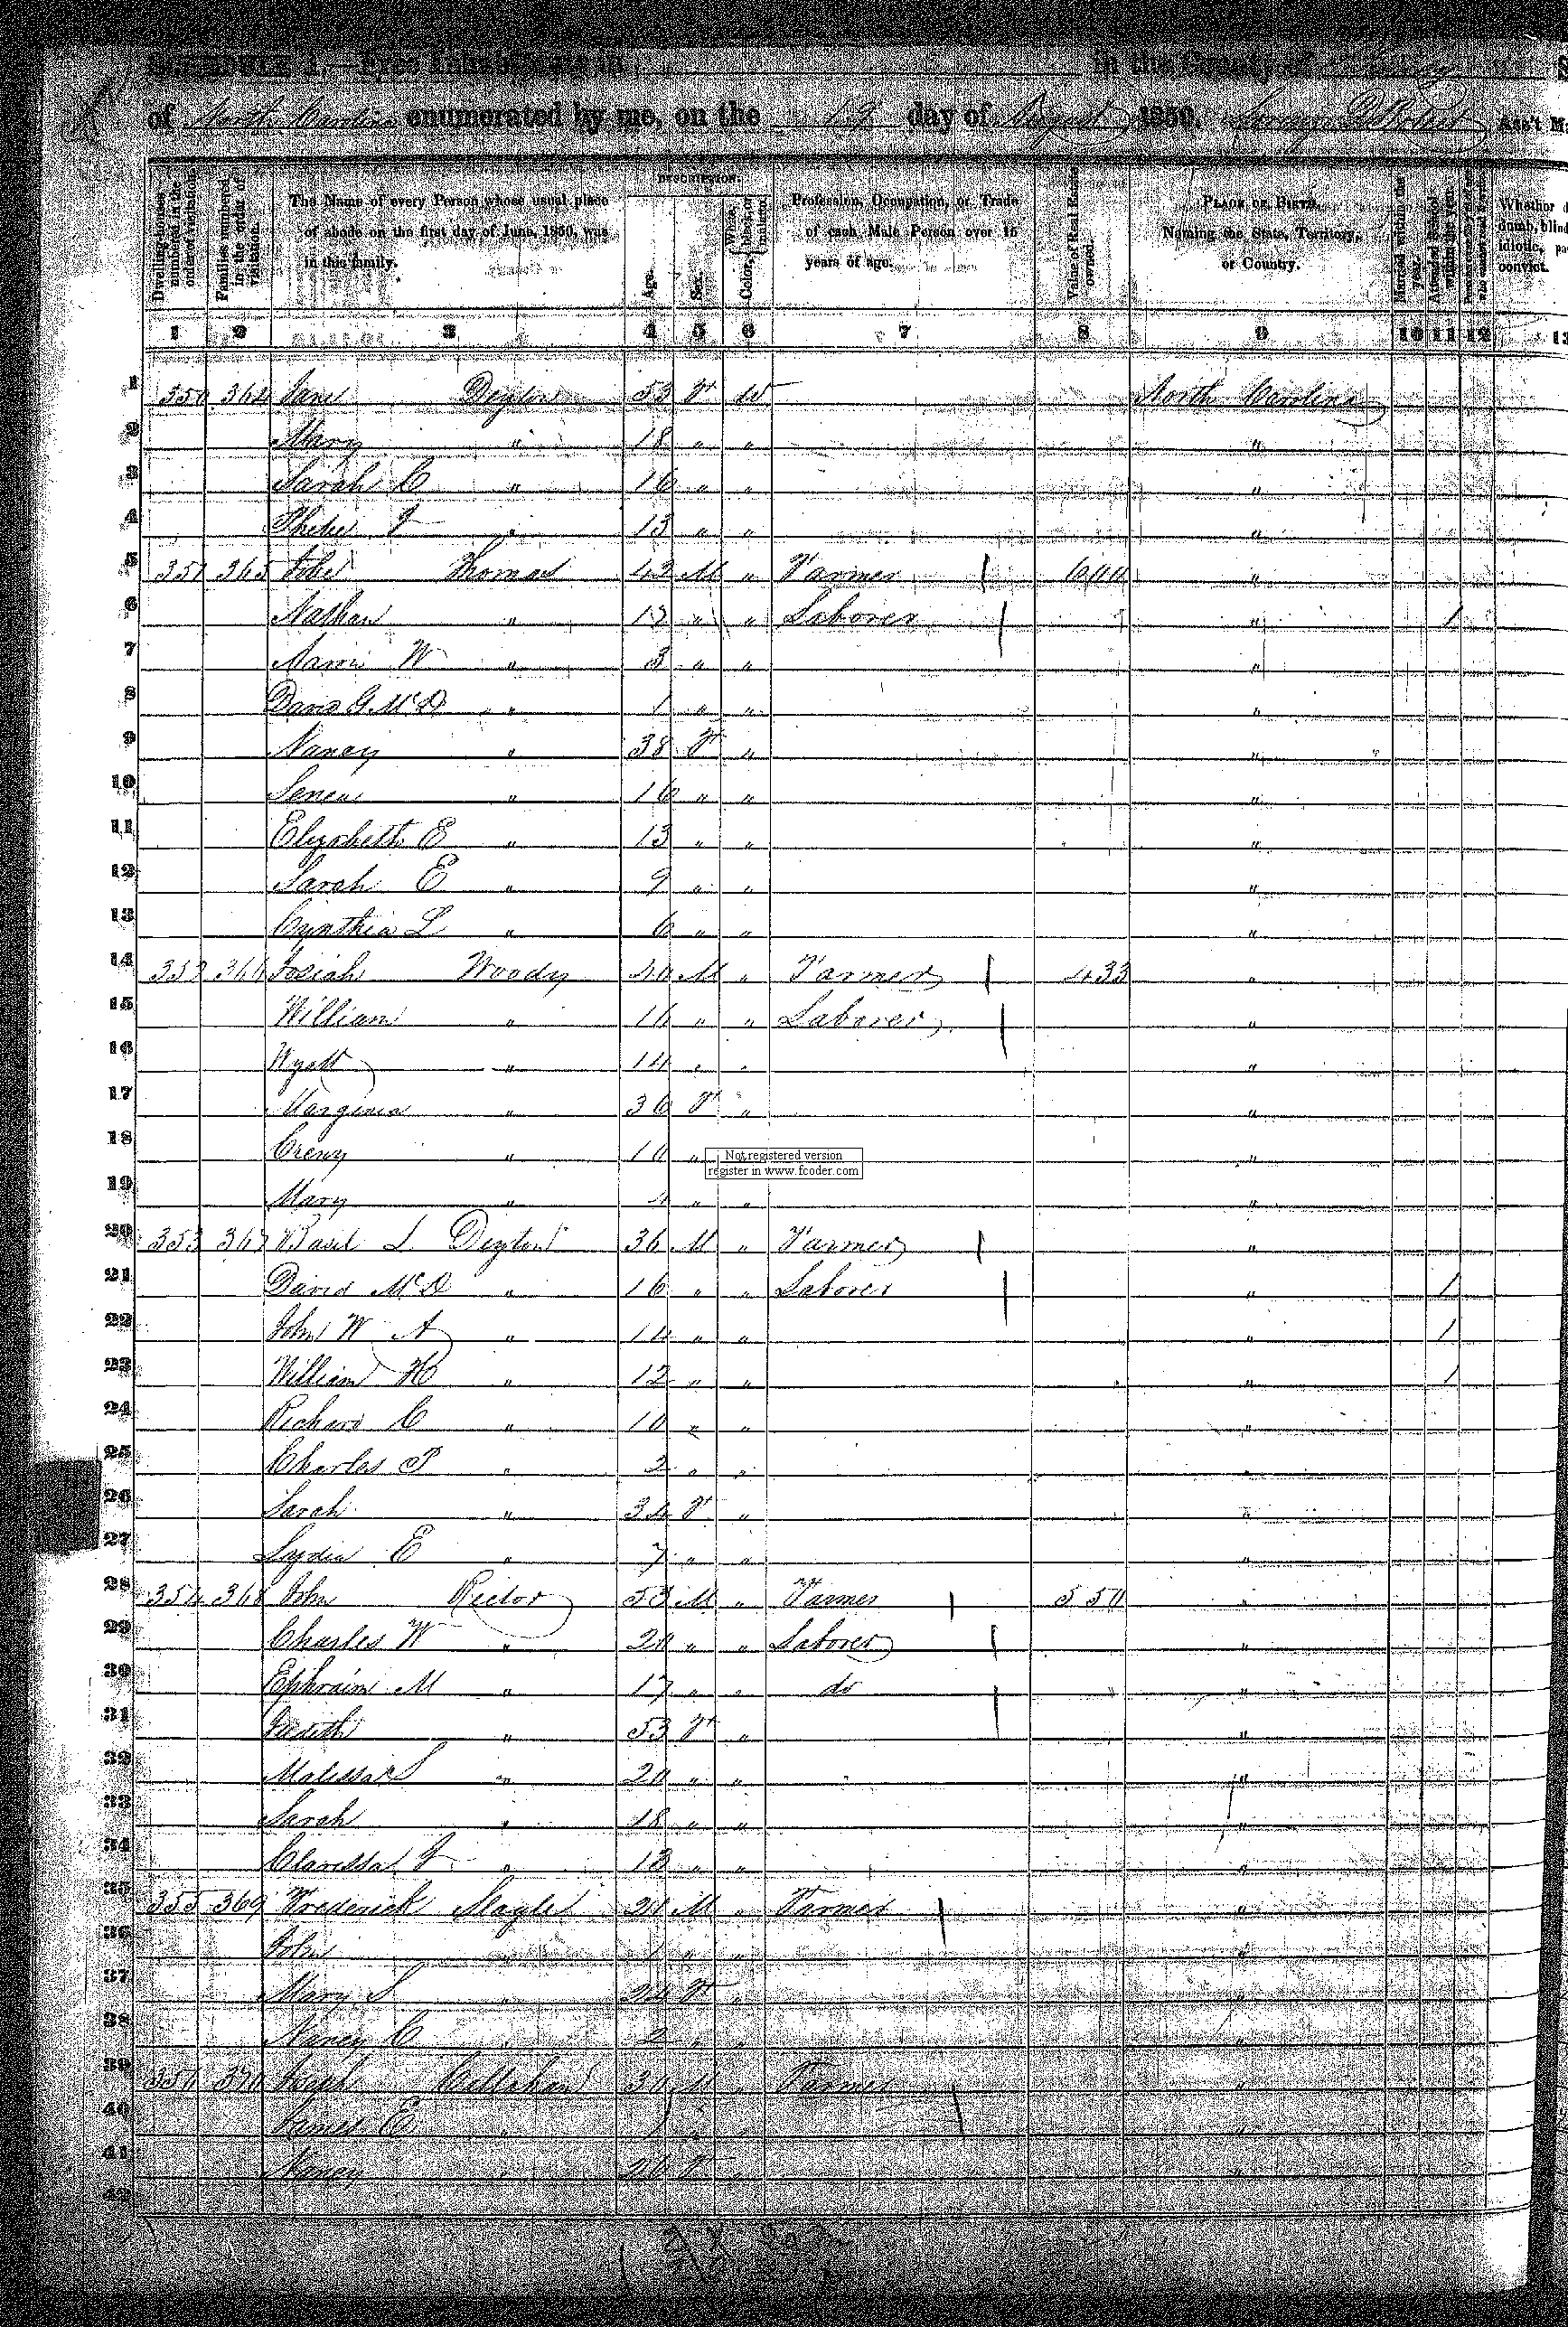 SCHEDULE I.—Free Inhabitants in in the County of
of North Carolina enumerated by me, on the 13 day of August 1850. Ass't M
Dwelling-houses numbered in the order of visitation.
Families numbered in the order of visitation.
The Name of every Person whose usual place of abode on the first day of June, 1850, was in this family.
DESCRIPTION.
Age.
Sex.
Color, White, black, or mulatto.
Profession, Occupation, or Trade of each Male Person over 15 years of age.
Value of Real Estate owned.
PLACE OF BIRTH. Naming the State, Territory, or Country.
Married within the year.
Attended School within the year.
Whether dumb, blind idiotic, convict.
1 2 3 4 5 6 7 8 9 10 11 12 13
1 350 364 Jane Deyton 53 F North Carolina
2 Mary " 18 " " "
3 Sarah C " 16 " " "
4 Phebe J " 13 " " "
5 351 365 Thomas 42 M " Farmer 600 "
6 Nathan " 17 " " Laborer " 1
7 W " 3 " " "
8 David G. McD " 1 " " "
9 Nancy " 38 F " "
10 " 16 " " "
11 Elizabeth E " 13 " " "
12 Sarah E " 9 " " "
13 Cynthia L " 6 " " "
14 352 366 Josiah Woody 40 M " Farmer 433 "
15 William " 16 " " Laborer "
16 Wyatt " 14 " " "
17 " 36 F " "
18 Creny " 10 " "
19 Mary " 4 " "
Not registered version
register in www.fcoder.com
20 353 367 Basil L Deyton 36 M " Farmer "
21 David McD " 16 " " Laborer " 1
22 John W A " 14 " " " 1
23 William H " 12 " " " 1
24 Richard C " 10 " " "
25 Charles P " 2 " " "
26 Sarah " 34 F " "
27 Lydia E " 7 " " "
28 354 368 John Rector 53 M " Farmer 550 "
29 Charles W " 20 " " Laborer "
30 Ephraim M " 17 " " do "
31 Judith " 53 F " "
32 Malissa S " 20 " " "
33 Sarah " 18 " " "
34 Clarissa J " 13 " " "
35 355 369 Frederick Slagle 21 M " Farmer "
36 John " 1 " " "
37 Mary S " 24 F " "
38 Nancy C " 2 " " "
39 356 370 Callahan 30 M " Farmer "
40 James E " 1 " "
41 Nancy " 26 F "
42